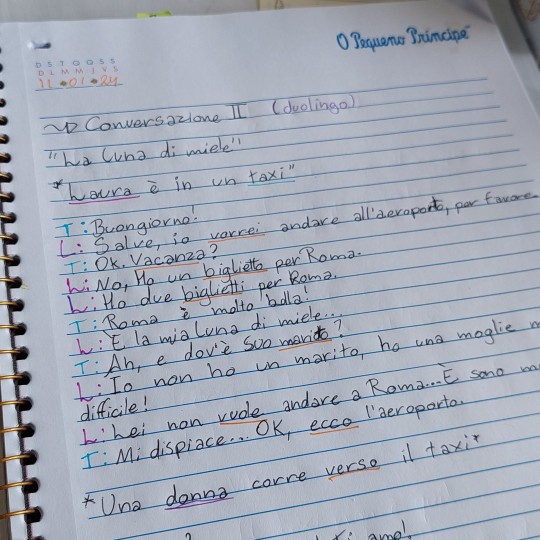 O Pequeno Príncipe
D S T Q Q S S
D L M M J V S
11 01 24
Conversazione II (duolingo)
"La luna di miele"
* Laura è in un taxi"
T: Buongiorno!
L: Salve, io vorrei andare all'aeroporto, per favore
T: Ok. Vacanza?
L: No, Ho un biglietto per Roma.
L: Ho due biglietti per Roma.
T: Roma è molto bella!
L: È la mia luna di miele...
T: Ah, e dov'è suo marito?
L: Io non ho un marito, ho una moglie
difficile!
L: Lei non vuole andare a Roma... E sono
T: Mi dispiace... OK, ecco l'aeroporto.
* Una donna corre verso il taxi*
amo!